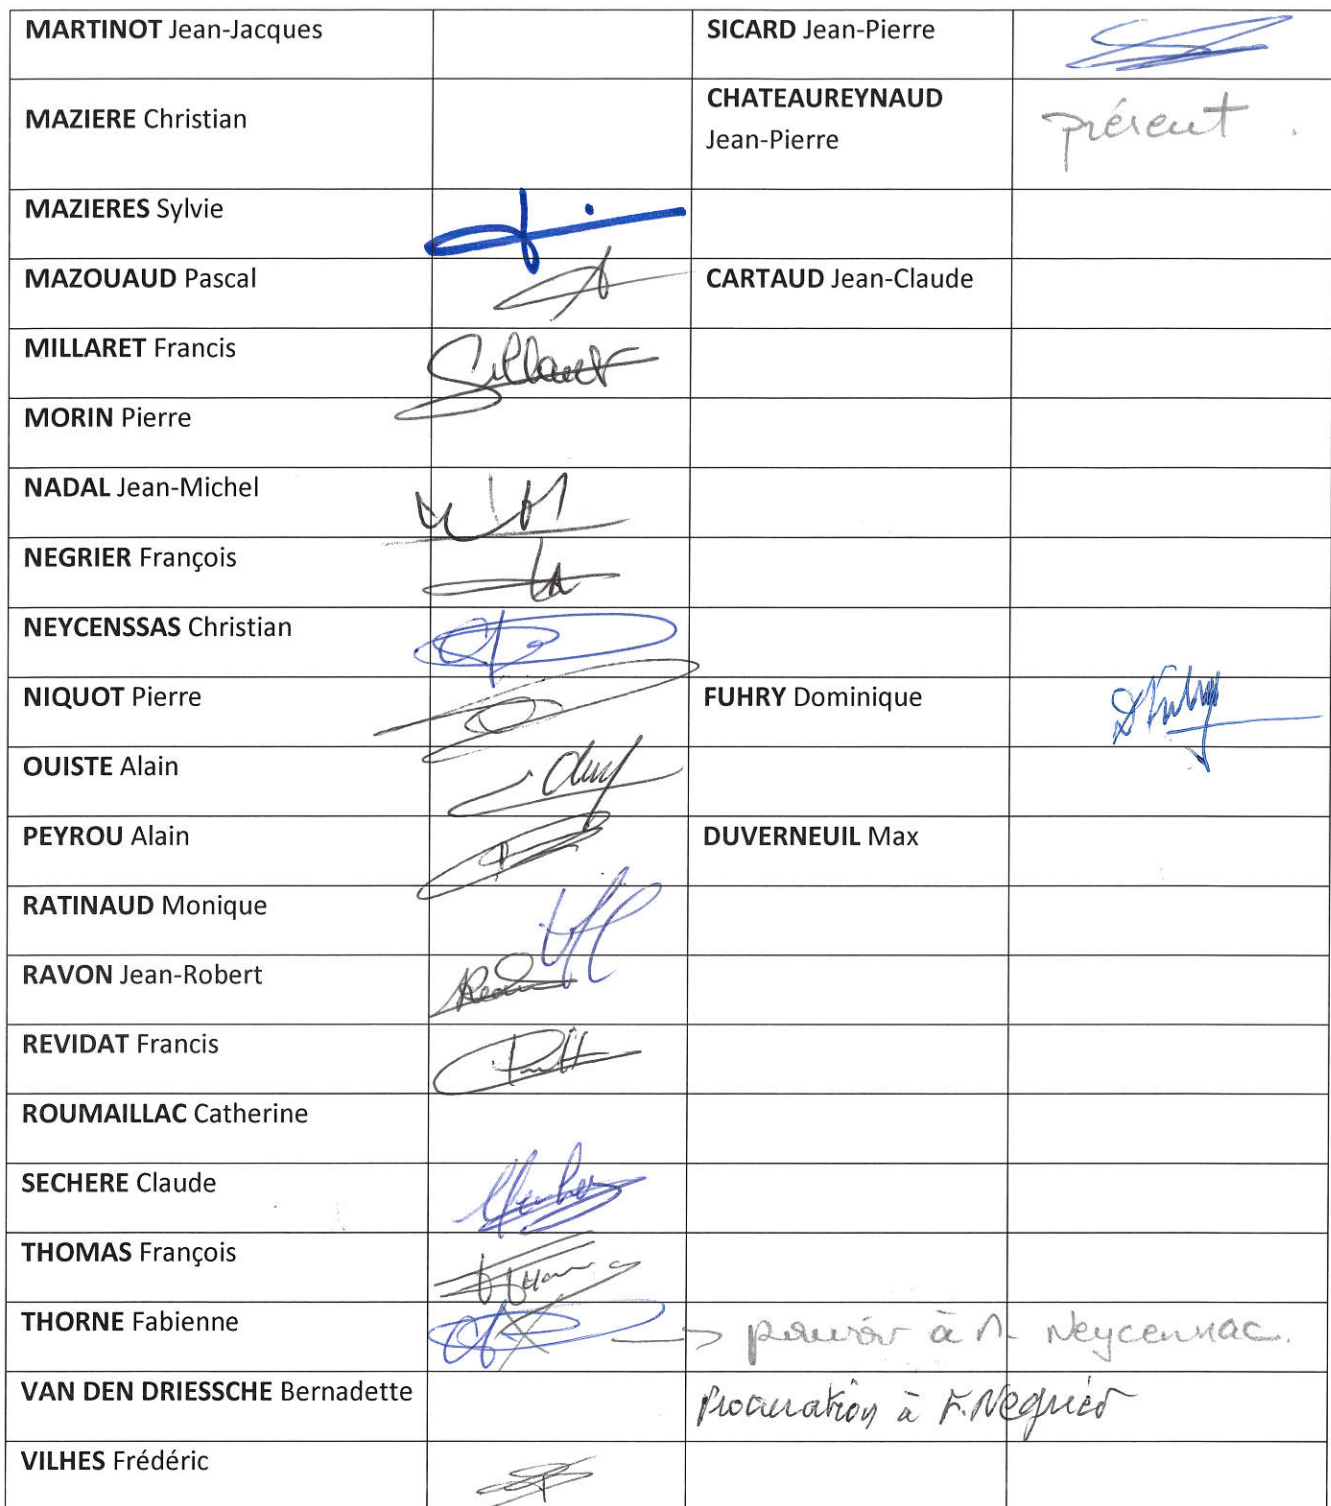 MARTINOT Jean-Jacques SICARD Jean-Pierre
MAZIERE Christian CHATEAUREYNAUD Jean-Pierre présent.
MAZIERES Sylvie
MAZOUAUD Pascal CARTAUD Jean-Claude
MILLARET Francis
MORIN Pierre
NADAL Jean-Michel
NEGRIER François
NEYCENSSAS Christian
NIQUOT Pierre FUHRY Dominique DFuhry
OUISTE Alain
PEYROU Alain DUVERNEUIL Max
RATINAUD Monique
RAVON Jean-Robert
REVIDAT Francis
ROUMAILLAC Catherine
SECHERE Claude
THOMAS François
THORNE Fabienne → pouvoir à M. Neycennac.
VAN DEN DRIESSCHE Bernadette Procuration à F. Negrier
VILHES Frédéric